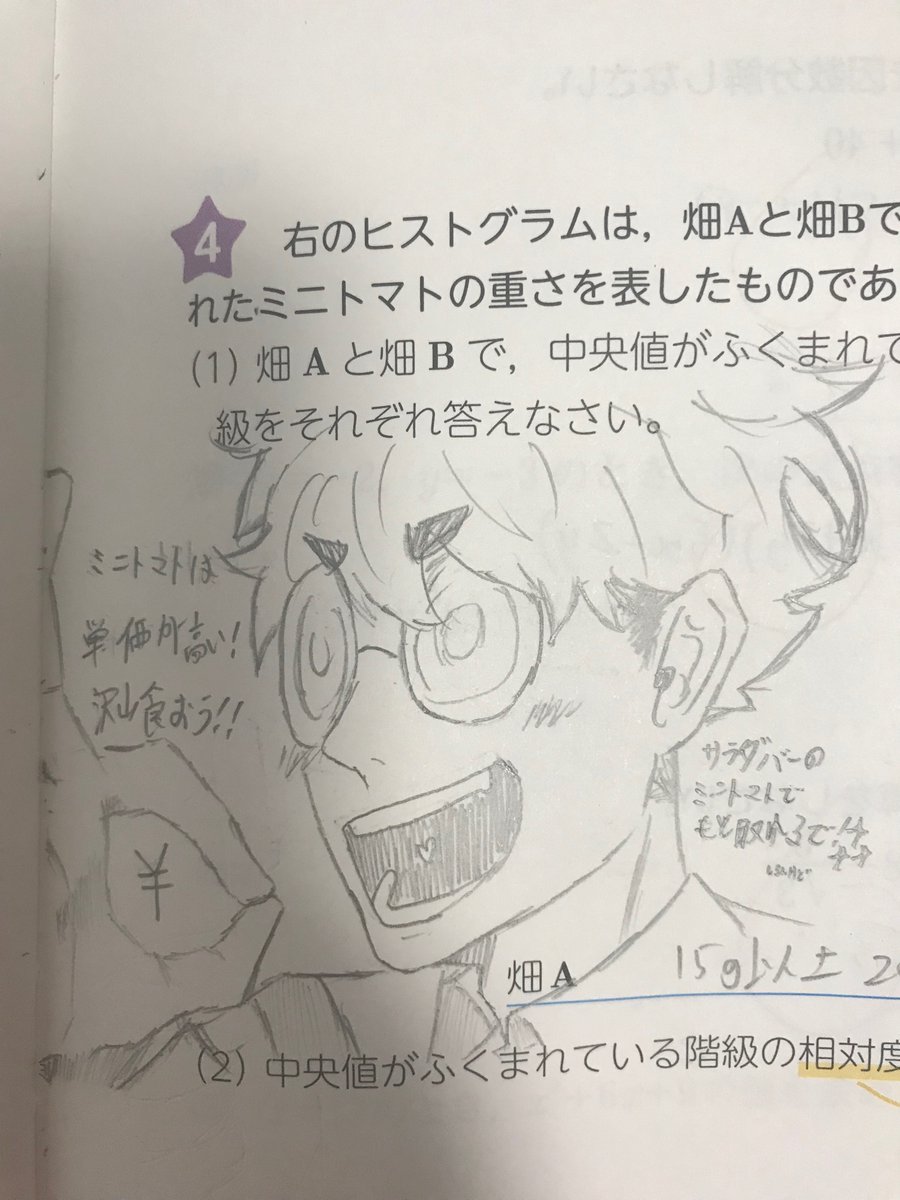 4
右のヒストグラムは，畑Aと畑Bで
れたミニトマトの重さを表したものであ
(1) 畑 A と畑 B で，中央値がふくまれて
級をそれぞれ答えなさい。
ミニトマトは
単価が高い!
沢山食おう!!
¥
サラダバーの
ミニトマトで
もと取れるで!
畑 A 15g以上 20
(2) 中央値がふくまれている階級の相対度